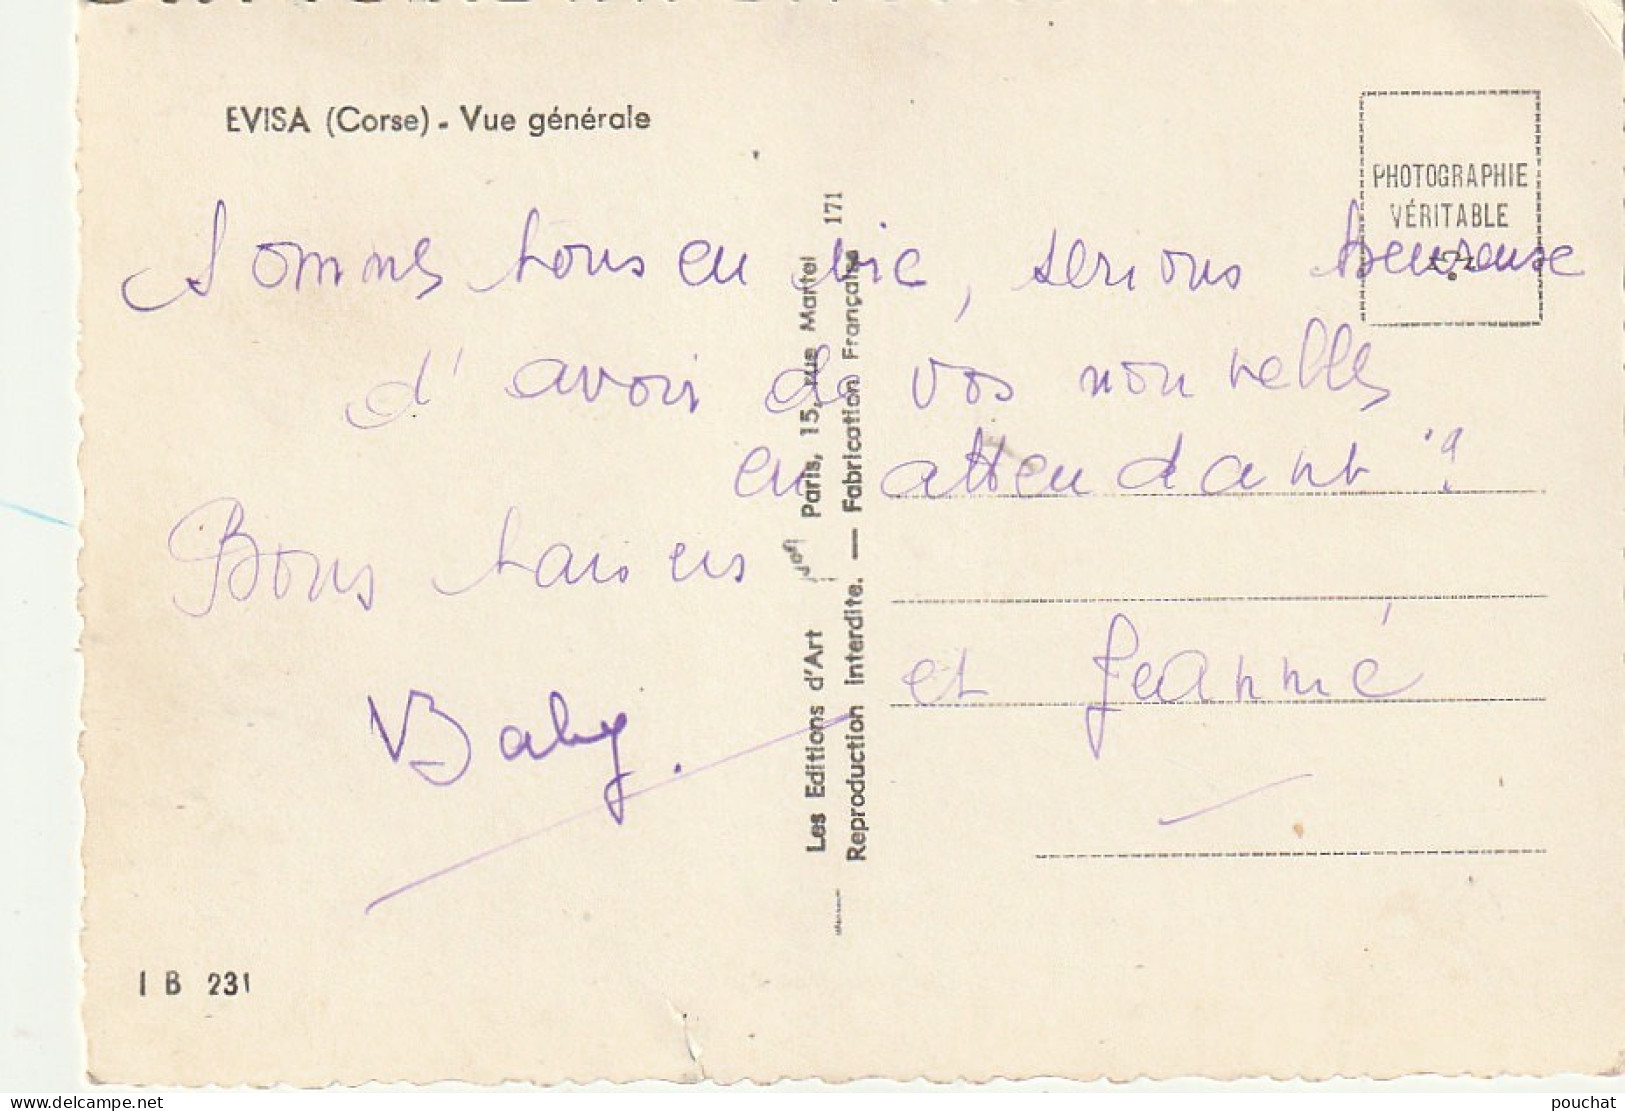 EVISA (Corse) - Vue générale
PHOTOGRAPHIE
VÉRITABLE
Sommes tous en vie, serions heureuse
d'avoir de vos nouvelles
en attendant
Bons baisers
et Jeanne
Baby.
Les Editions d'Art Paris, 15, rue Martel
Reproduction interdite. — Fabrication Française 171
I B 231
delcampe.net
pouchat